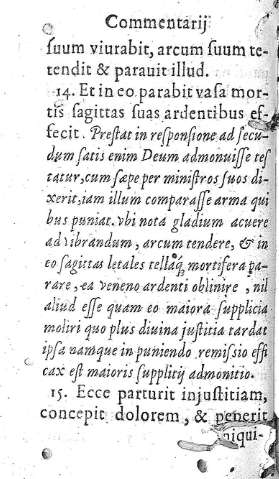 Commentarij
ſuum viurabit, arcum ſuum te-
tendit & parauit illud.
14. Et in eo parabit vaſa mor-
tis ſagittas ſuas ardentibus ef-
fecit. Preſtat in reſponſione ad ſecu-
dum ſatis enim Deum admonuiſſe teſ
tatur, cum ſæpe per miniſtros ſuos di-
xerit, iam illum comparaſſe arma qui
bus puniat. vbi nota gladium acuere
ad vibrandum, arcum tendere, & in
eo ſagittas letales tellaq; mortifera pa-
rare, ea veneno ardenti oblinire, nil
aliud eſſe quam eo maiora ſupplicia
moliri quo plus diuina juſtitia tardat
ipſa namque in puniendo remiſſio effi
cax eſt maioris ſupplitij admonitio.
15. Ecce parturit injuſtitiam,
concepit dolorem, & peperit
iniqui-